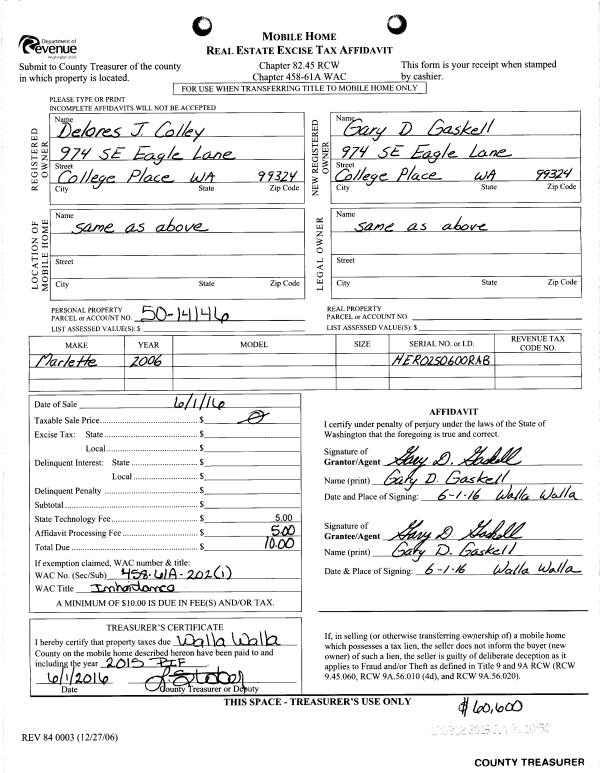 Department of
Revenue
Washington State
MOBILE HOME
REAL ESTATE EXCISE TAX AFFIDAVIT
Submit to County Treasurer of the county
in which property is located.
Chapter 82.45 RCW
Chapter 458-61A WAC
This form is your receipt when stamped
by cashier.
FOR USE WHEN TRANSFERRING TITLE TO MOBILE HOME ONLY
PLEASE TYPE OR PRINT
INCOMPLETE AFFIDAVITS WILL NOT BE ACCEPTED
REGISTERED OWNER
Name
Delores J. Colley
974 SE Eagle Lane
Street
College Place WA 99324
City State Zip Code
NEW REGISTERED OWNER
Name
Gary D. Gaskell
974 SE Eagle Lane
Street
College Place WA 99324
City State Zip Code
LOCATION OF MOBILE HOME
Name
same as above
Street
City State Zip Code
LEGAL OWNER
Name
same as above
Street
City State Zip Code
PERSONAL PROPERTY
PARCEL or ACCOUNT NO. 50-14146
LIST ASSESSED VALUE(S): $
REAL PROPERTY
PARCEL or ACCOUNT NO.
LIST ASSESSED VALUE(S): $
MAKE YEAR MODEL SIZE SERIAL NO. or I.D. REVENUE TAX CODE NO.
Marlette 2006 HERO250600RAB
Date of Sale 6/1/16
Taxable Sale Price $ 0
Excise Tax: State $
Local $
Delinquent Interest: State $
Local $
Delinquent Penalty $
Subtotal $
State Technology Fee $ 5.00
Affidavit Processing Fee $ 5.00
Total Due $ 10.00
If exemption claimed, WAC number & title:
WAC No. (Sec/Sub) 458-61A-202(1)
WAC Title Inheritance
A MINIMUM OF $10.00 IS DUE IN FEE(S) AND/OR TAX.
AFFIDAVIT
I certify under penalty of perjury under the laws of the State of
Washington that the foregoing is true and correct.
Signature of
Grantor/Agent Gary D. Gaskell
Name (print) Gary D. Gaskell
Date and Place of Signing: 6-1-16 Walla Walla
Signature of
Grantee/Agent Gary D. Gaskell
Name (print) Gary D. Gaskell
Date & Place of Signing: 6-1-16 Walla Walla
TREASURER'S CERTIFICATE
I hereby certify that property taxes due Walla Walla
County on the mobile home described hereon have been paid to and
including the year 2015 PIF
6/1/2016
Date County Treasurer or Deputy
If, in selling (or otherwise transferring ownership of) a mobile home
which possesses a tax lien, the seller does not inform the buyer (new
owner) of such a lien, the seller is guilty of deliberate deception as it
applies to Fraud and/or Theft as defined in Title 9 and 9A RCW (RCW
9.45.060, RCW 9A.56.010 (4d), and RCW 9A.56.020).
THIS SPACE - TREASURER'S USE ONLY
$60,600
REV 84 0003 (12/27/06)
COUNTY TREASURER